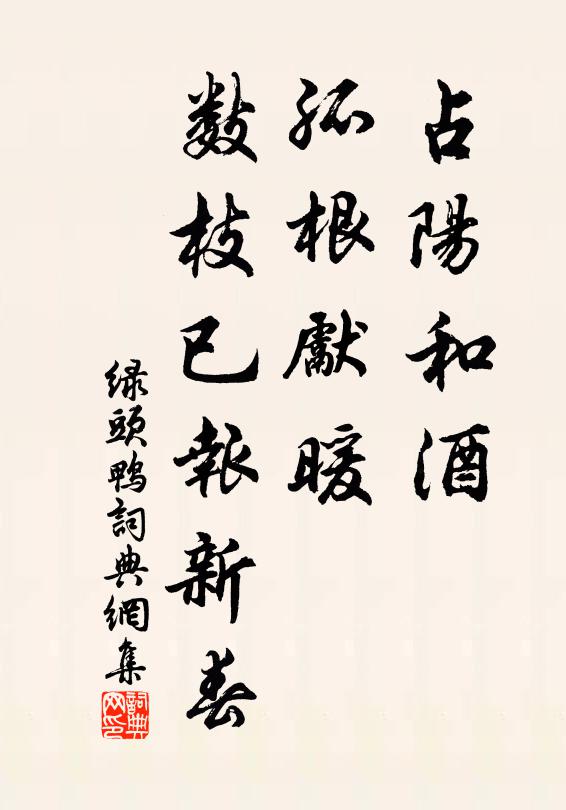 占陽和酒
孤根獻暖
數枝已報新春
绿頭鴨詞典網集
詞典网印